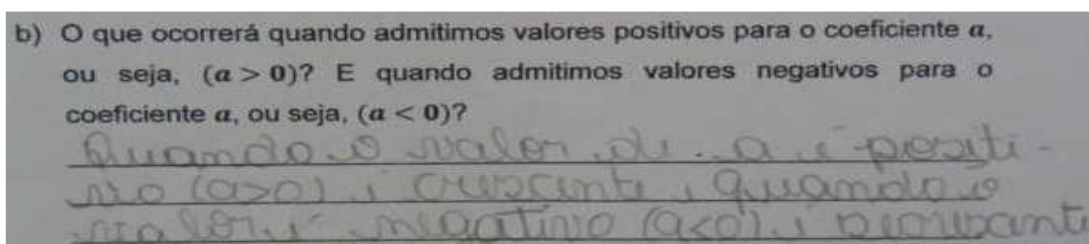 b) O que ocorrerá quando admitimos valores positivos para o coeficiente a,
ou seja, (a > 0)? E quando admitimos valores negativos para o
coeficiente a, ou seja, (a < 0)?
Quando o valor de a é positi-
vo (a>0) é crescente, quando o
valor é negativo (a<0) é decrescent